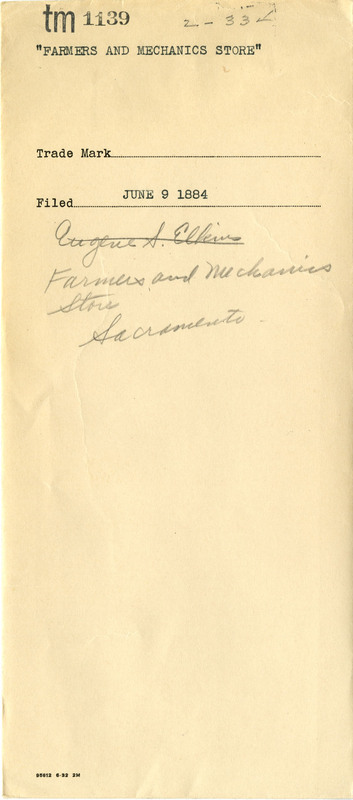 tm 1139 2-334
"FARMERS AND MECHANICS STORE"
Trade Mark
Filed JUNE 9 1884
Eugene S. Elkins
Farmers and Mechanics
Store
Sacramento
95612 6-32 2M